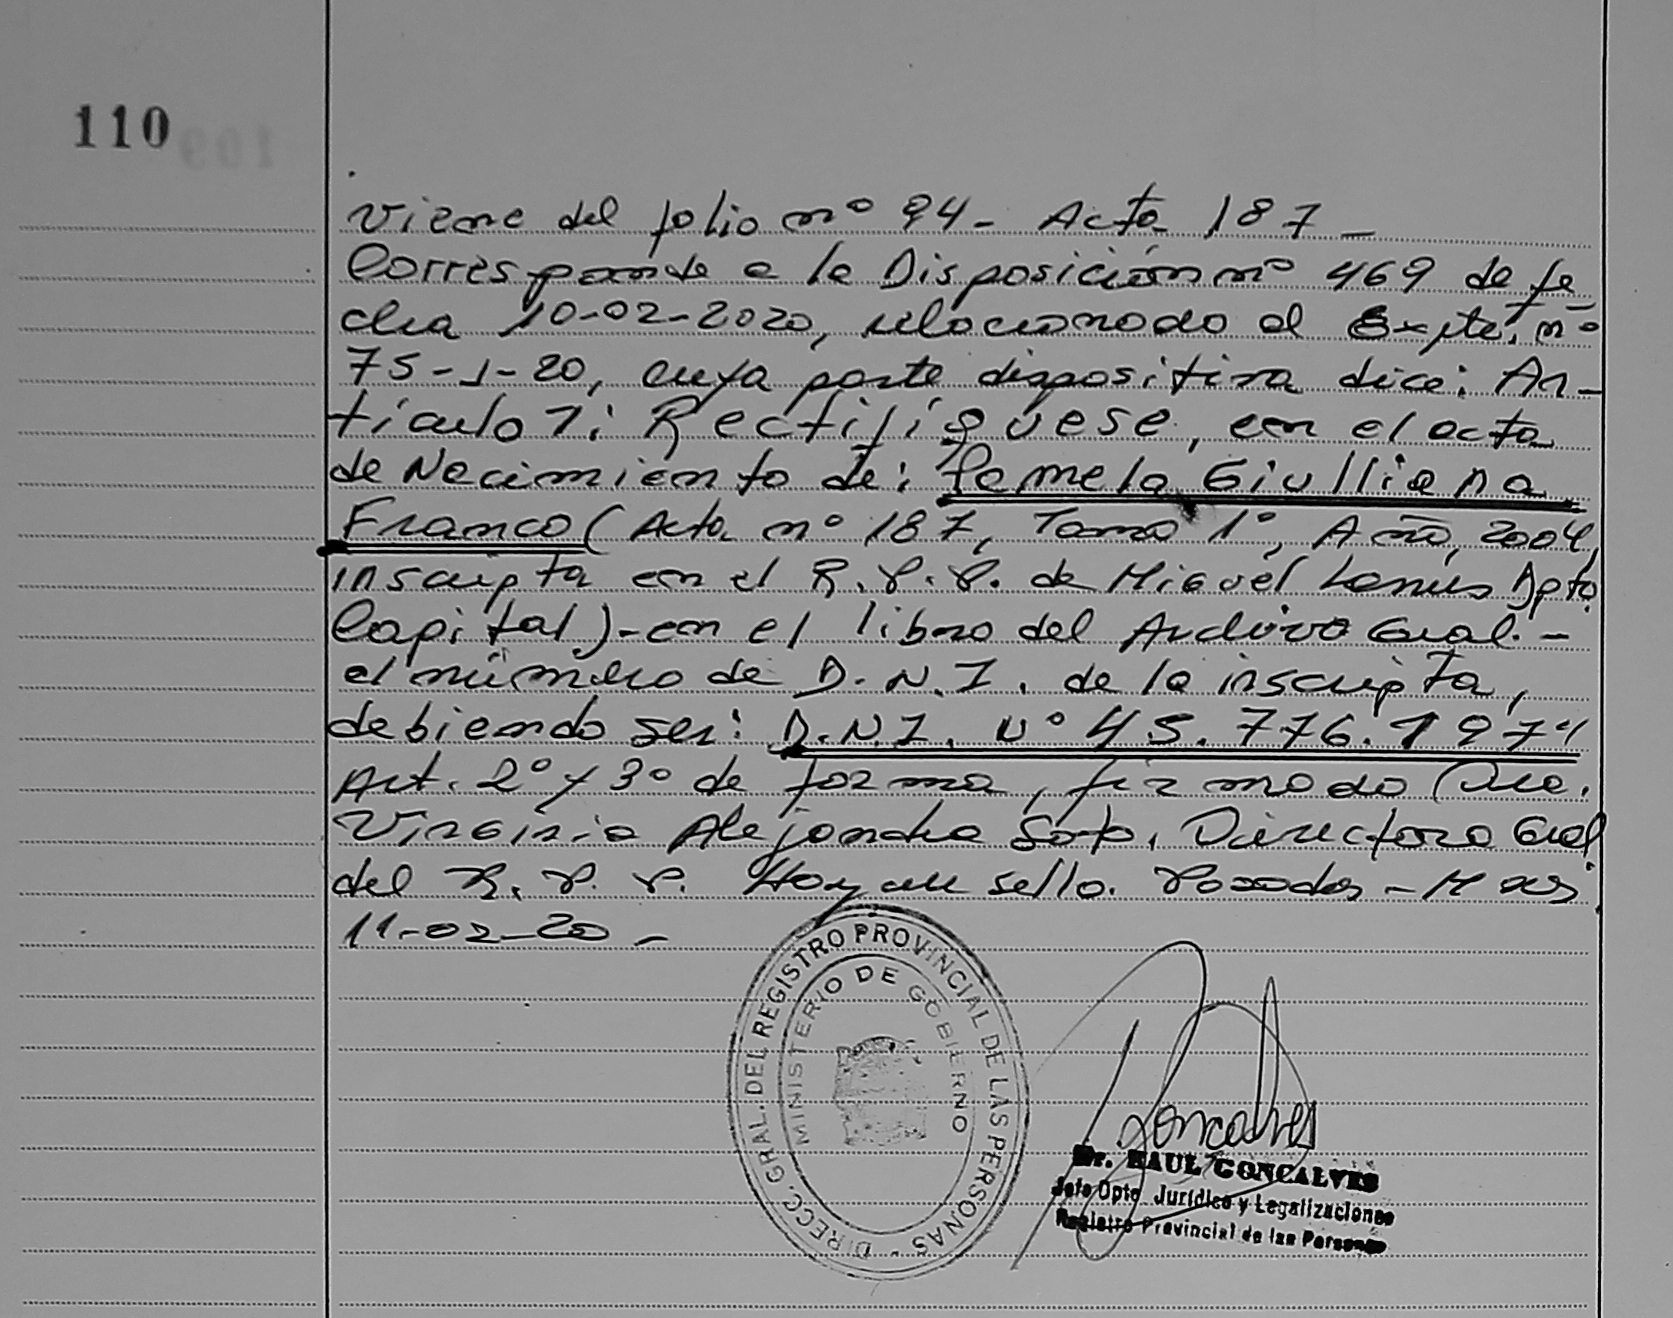 110
Viene del folio nº 94- Acta 187-
Corresponde a la Disposición nº 469 de fe
cha 10-02-2020, relacionado al Expte. nº
75-1-20, cuya parte dispositiva dice: Ar-
tículo 1: Rectifíquese, en el acta
de Nacimiento de: "Pamela Giulliana
Franco (Acta nº 187, Tomo 1º, Año, 2004,
inscripta en el R.P.P. de Miguel Lanús Dpto
Capital)-en el libro del Archivo Gral.-
el número de D.N.I. de la inscripta,
debiendo ser: D.N.I. Nº 45.776.197"
Art. 2º y 3º de forma, firmado
Virginia Alejandra Soto, Directora Gral
del R.P.P. Hay un sello. Posadas-Mnes
11-02-20-
DIRECC. GRAL. DEL REGISTRO PROVINCIAL DE LAS PERSONAS -
MINISTERIO DE GOBIERNO
Goncalves
Dr. RAUL GONCALVES
Jefe Dpto Jurídico y Legalizaciones
Registro Provincial de las Personas